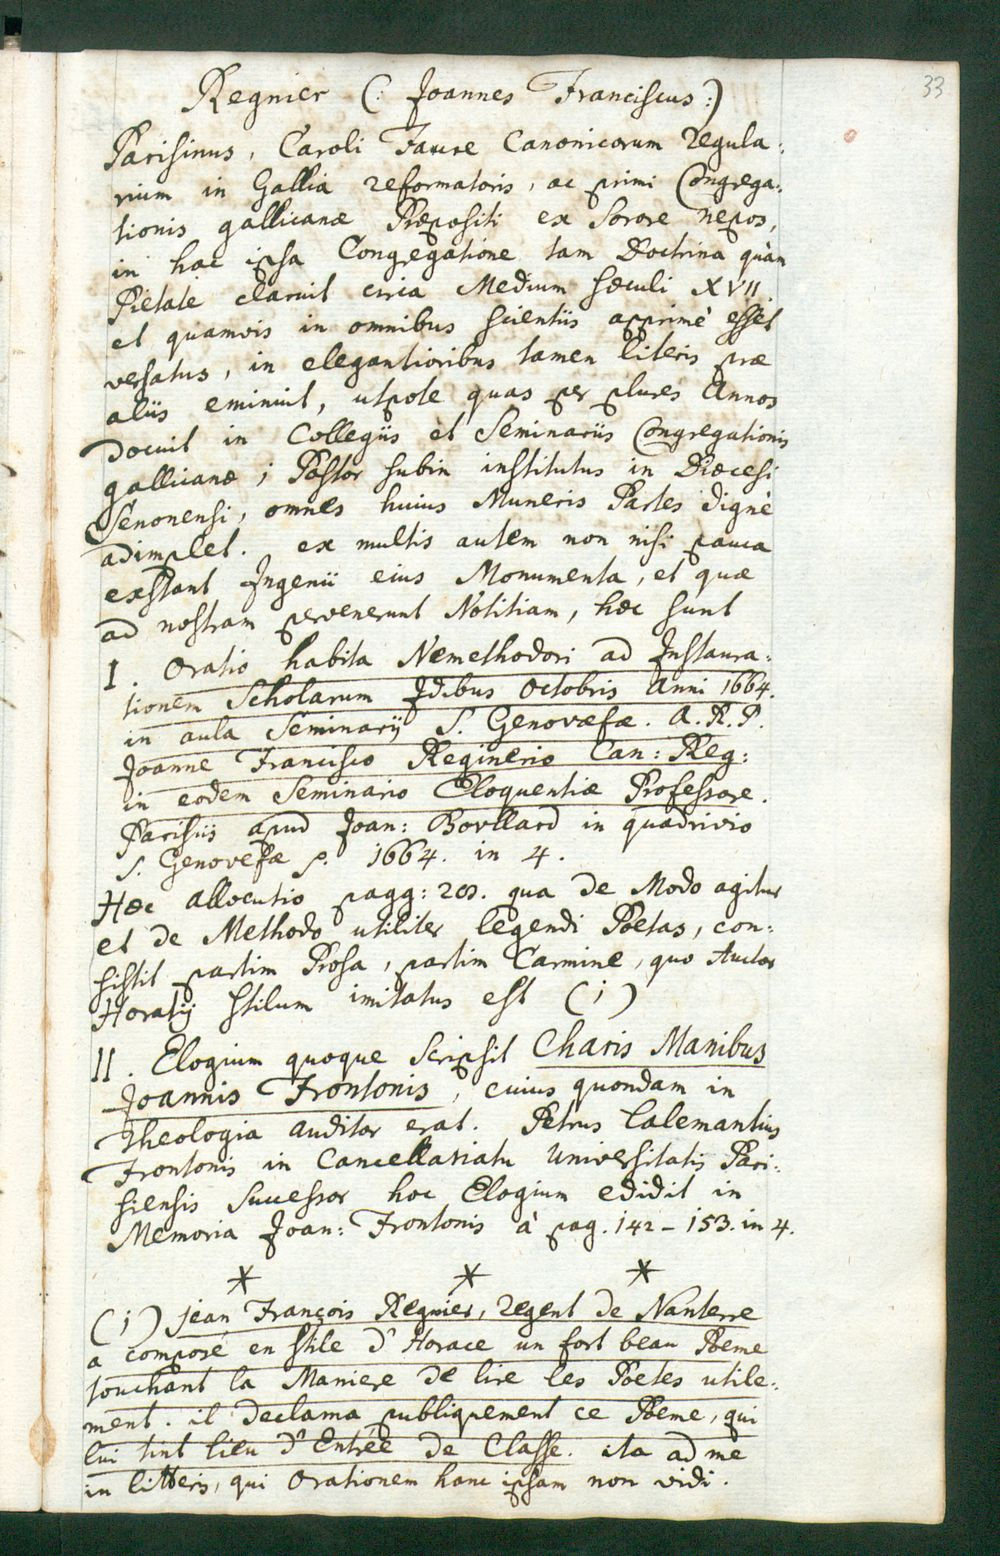 33
Regnier (: Joannes Franciscus :)
Parisinus, Caroli Faure Canonicorum regula-
rium in Gallia reformatoris, ac primi Congrega-
tionis gallicanæ Præpositi ex Sorore nepos,
in hac ipsa Congregatione tam Doctrina quàm
Pietate claruit circa Medium sæculi XVII.
et quamvis in omnibus scientiis apprimè esset
versatus, in elegantioribus tamen literis præ
aliis eminuit, utpote quas per plures Annos
docuit in Collegiis et Seminariis Congregationis
gallicanæ; Pastor subin institutus in Diœcesi
Senonensi, omnes huius Muneris Partes dignè
adimplet. ex multis autem non nisi pauca
exstant Ingenii eius Monumenta, et quæ
ad nostram pervenerunt Notitiam, hæc sunt
I. Oratio habita Nemethodori ad Instaura-
tionem Scholarum Idibus Octobris Anni 1664.
in aula Seminarij S. Genovefæ. A. R. P.
Joanne Francisco Reginerio Can: Reg:
in eodem Seminario Eloquentiæ Professore.
Parisiis apud Joan: Boullard in quadrivio
S. Genovefæ p. 1664. in 4.
Hæc allocutio pagg: 28. qua de Modo agitur
et de Methodo utiliter legendi Poetas, con-
sistit partim Prosa, partim Carmine, quo Auctor
Horatij stilum imitatus est (i)
II. Elogium quoque scripsit Charis Manibus
Joannis Frontonis, cuius quondam in
Theologia auditor erat. Petrus Lalemantius
Frontonis in Cancellariatu Universitatis Pari-
siensis Successor hoc Elogium edidit in
Memoria Joan: Frontonis à pag. 142 - 153. in 4.
* * *
(i) jean François Regnier, regent de Nanterre
a composé en stile d'Horace un fort beau Poeme
touchant la Maniere de lire les Poetes utile-
ment. il declama publiquement ce Poeme, qui
lui tint lieu d'Entrée de Classe. ita ad me
in litteris, qui Orationem hanc ipsam non vidi.